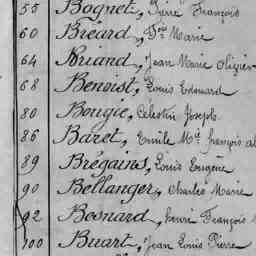 55 Bognet, Pierre François
60 Bréard, Fois Marie
64 Briand, Jean Marie Olizier
68 Benoist, Louis Edouard
80 Bougie, Célestin Joseph
86 Baret, Emile Mie françois al
89 Brégains, Louis Eugène
90 Bellanger, Charles Marie
92 Besnard, henri François
100 Buart, Jean Louis Pierre